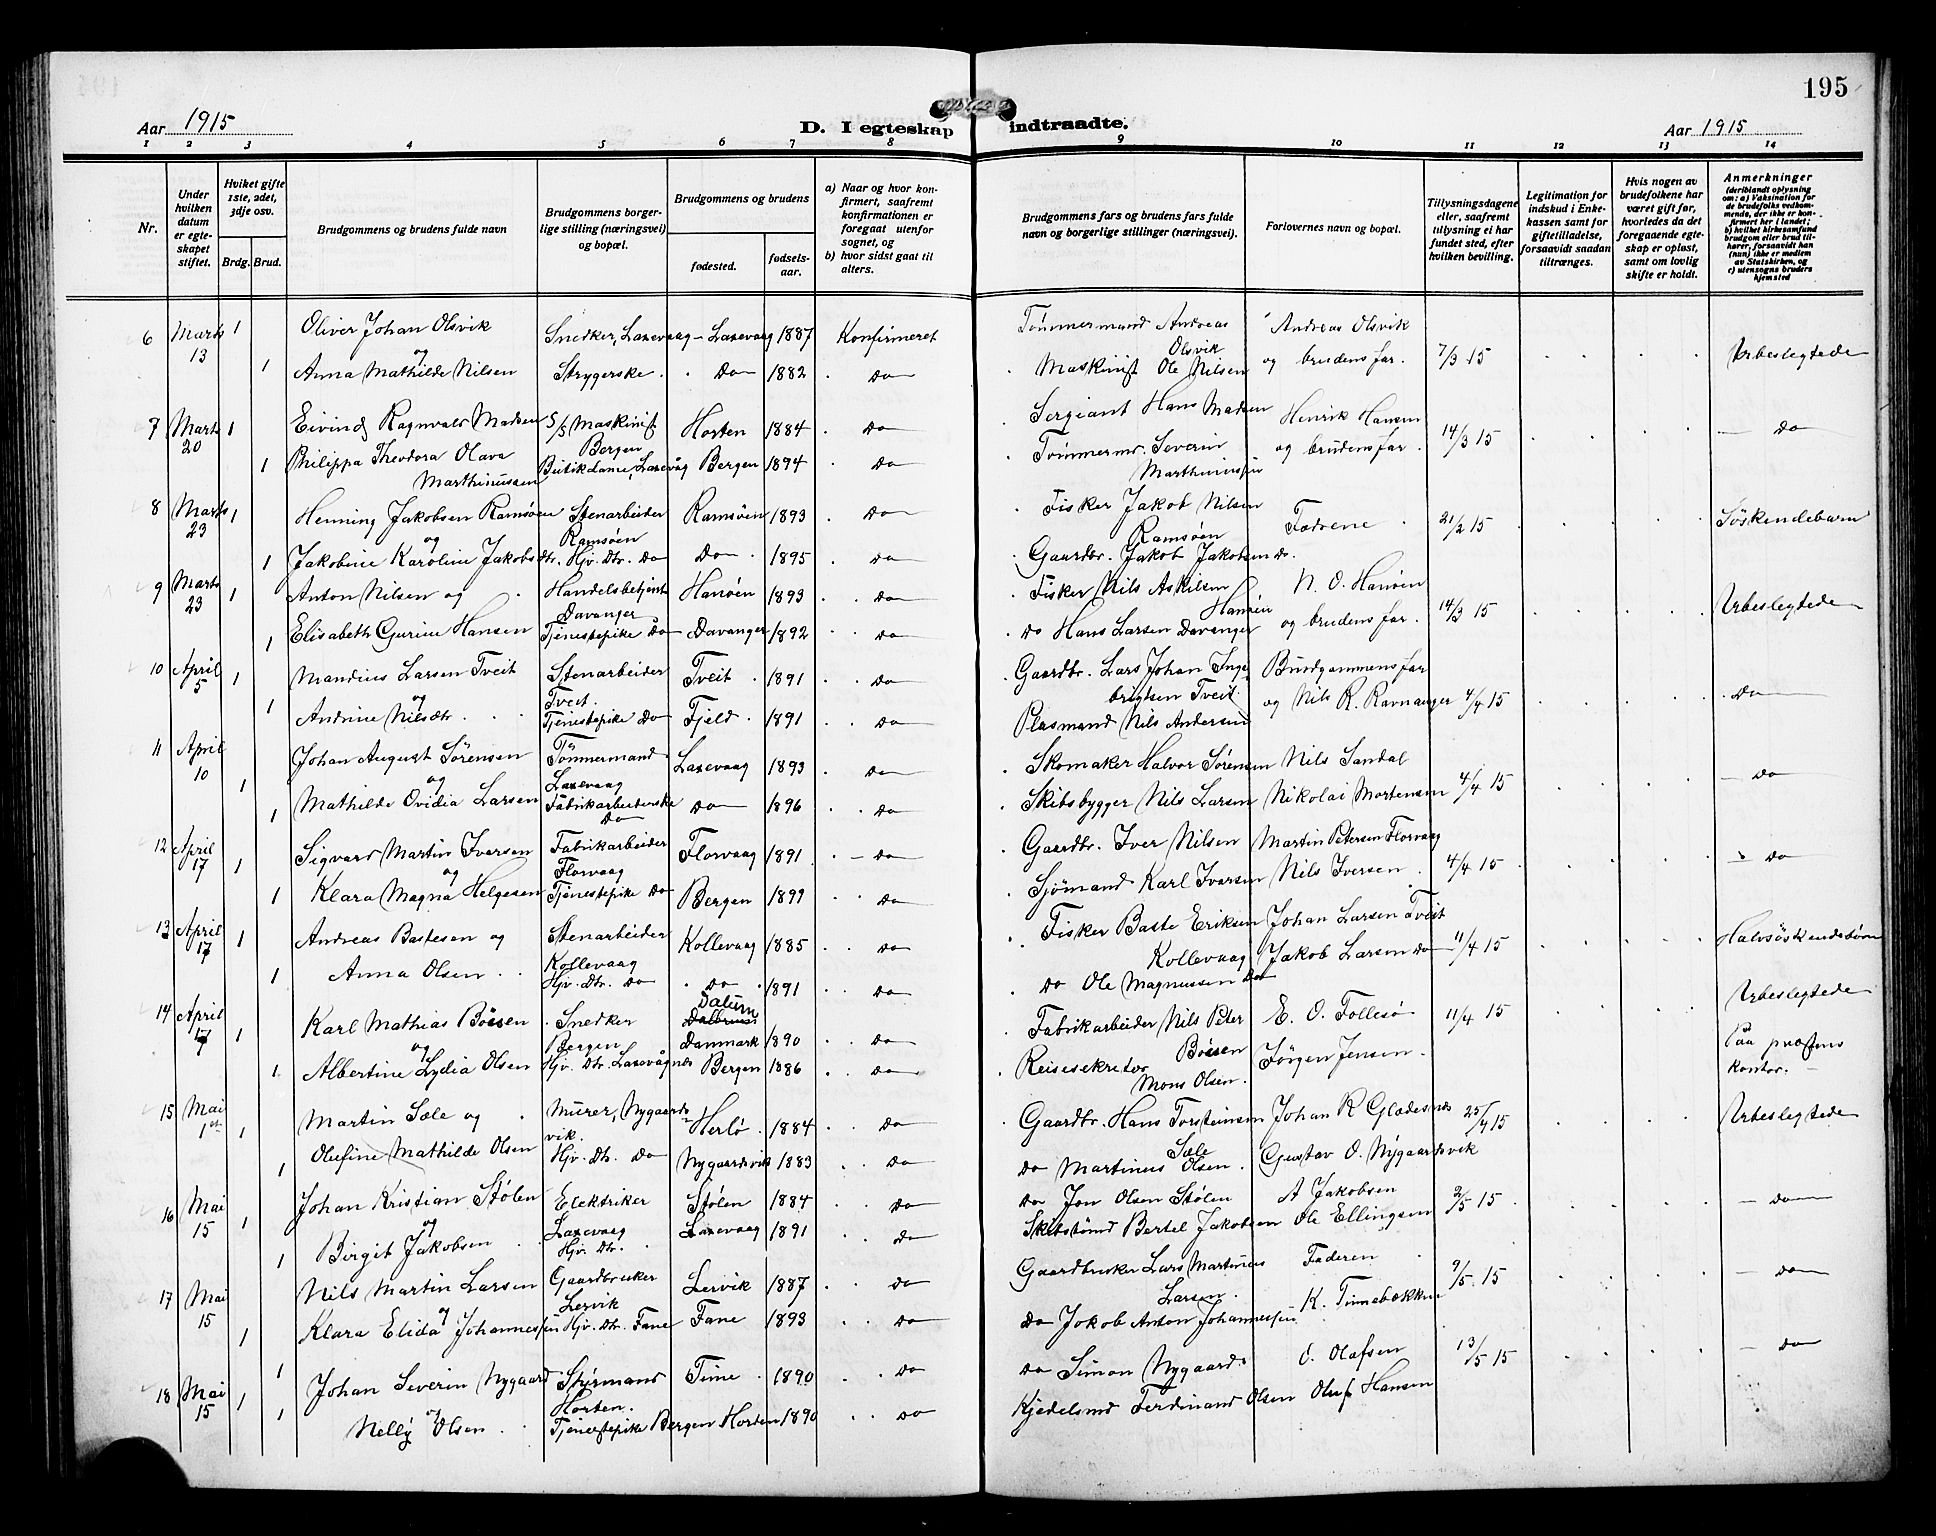 195
Aar 1915
D. I egteskap indtraadte.
Aar 1915
1 2 3 4 5 6 7 8 9 10 11 12 13 14
Nr.
Under hvilken datum er egteskapet stiftet.
Hviket gifte 1ste, 2det, 3dje osv.
Brdg. Brud.
Brudgommens og brudens fulde navn
Brudgommens borgerlige stilling (næringsvei) og bopæl.
Brudgommens og brudens
fødested.
fødselsaar.
a) Naar og hvor konfirmert, saafremt konfirmationen er foregaat utenfor sognet, og
b) hvor sidst gaat til alters.
Brudgommens fars og brudens fars fulde navn og borgerlige stillinger (næringsvei).
Forlovernes navn og bopæl.
Tillysningsdagene eller, saafremt tillysning ei har fundet sted, efter hvilken bevilling.
Legitimation for indskud i Enkekassen samt for giftetilladelse, forsaavidt saadan tiltrænges.
Hvis nogen av brudefolkene har været gift før, hvorledes da det foregaaende egteskap er opløst, samt om lovlig skifte er holdt.
Anmerkninger
(deriblandt oplysning om: a) Vaksination for de brudefolks vedkommende, der ikke er konfirmert her i landet; b) hvilket kirkesamfund brudgom eller brud tilhører, forsaavidt han (hun) ikke er medlem av Statskirken, og c) utensogns bruders hjemsted
6 Marts 13 1 Oliver Johan Olsvik Snedker, Laxevaag – Laxevaag 1887 Konfirmeret Tømmermand Andreas Olsvik Andreas Olsvik 7/3 15 Ubeslegtede
og
1 Anna Mathilde Nilsen Strygerske. Do 1882 do Maskinist Ole Nilsen og brudens far.
7 Marts 20 1 Eivind Ragnvald Madsen S/S Maskinist Bergen Horten 1884 do Sergiant Hans Madsen Henrik Hansen 14/3 15 – do
1 Philippa Theodora Olava Marthinussen Butikdame, Laxevåg Bergen 1894 do Tømmerm. Severin Marthinussen og brudens far.
8 Marts 23 1 Henning Jakobsen Ramsøen Stenarbeider Ramsøen Ramsøen 1893 do Fisker Jakob Nilsen Ramsøen Fædrene 21/2 15 Söskendebarn
og
1 Jakobine Karoline Jakobsdtr. Hjv. Dtr. Do Do 1895 do Gaardbr. Jakob Jakobsen do.
9 Marts 23 1 Anton Nilsen og Handelsbetjent Davanger Hanøen 1893 do Fisker Nils Askilsen Hanøen N. O. Hanøen 14/3 15 Ubeslegtede
1 Elisabeth Gurine Hansen Tjenestepike Do Davanger 1892 do do Hans Larsen Davanger og brudens far.
10 April 5 1 Mandius Larsen Tveit Stenarbeider Tveit. Tveit 1891 do Gaardbr. Lars Johan Ingebrigtsen Tveit. Brudgommens far 4/4 15 do
og
1 Andrine Nilsdtr. Tjenestepike Do Fjeld 1891 do Plasmand Nils Andersen og Nils R. Ravnanger
11 April 10 1 Johan August Sørensen Tömmermand Laxevaag Laxevaag 1893 do Skomaker Halvor Sørensen Nils Sandal 4/4 15 – do
og
1 Mathilde Ovidia Larsen Fabrikarbeiderske Do Do 1896 do Skibsbygger Nils Larsen Nikolai Mortensen
12 April 17 1 Sigvard Martin Iversen Fabrikarbeider Florvaag Florvaag 1891 – do Gaardbr. Iver Nilsen Martin Petersen Florvaag 4/4 15 – do
og
1 Klara Magna Helgesen Tjenestepike Do Bergen 1899 do Sjömand Karl Iversen Nils Iversen
13 April 17 1 Andreas Bastesen og Stenarbeider Kollevaag Kollevaag 1885 do Fisker Baste Eriksen Kollevaag Johan Larsen Tveit 11/4 15 Halvsöskendebörn
1 Anna Olsen Hjv. Dtr. Do do 1891 do do Ole Magnussen do Jakob Larsen do
14 April 17 1 Karl Mathias Böesen Snedker Bergen Dalum Danmark 1890 do Fabrikarbeider Nils Peter Böesen E. O. Follesö 11/4 15 Ubeslegtede
og
1 Albertine Lydia Olsen Hjv. Dtr. Laxevågnes Bergen 1886 do Reisesekretær Mons Olsen. Jörgen Jensen. Paa præstens kontor.
15 Mai 1ste 1 Martin Sæle og Murer, Nygaardsvik. Herlö 1884 do Gaardbr. Hans Torsteinsen Sæle Johan R Gladesnes 25/4 15 Ubeslegtede
1 Olufine Mathilde Olsen Hjv. Dtr. Do Nygaardsvik 1883 do do Martinus Olsen. Gustav O. Nygaardsvik
16 Mai 15 1 Johan Kristian Stølen Elektriker Laxevaag Stølen 1884 do do Jon Olsen Stølen A Jakobsen 2/5 15 – do
og
1 Birgit Jakobsen Hjv. Dtr. Laxevaag 1891 do Skibstømd Bertel Jakobsen Ole Ellingsen
17 Mai 15 Nils Martin Larsen Gaardbruker Lervik Lervik 1887 do Gaardbruker Lars Martinus Larsen. Faderen 9/5 15 – do
og
1 Klara Elida Johannessen Hjv. Dtr. Fane Fane 1893 do do Jakob Anton Johannessen K. Tinnebækken
1
18 Mai 15 1 Johan Severin Nygaard Styrmand Horten. Time 1890 do do Simon Nygaard O. Olafsen 13/5 15 – do
og
1 Nelly Olsen Tjenestepike Bergen Horten 1890 do Kjedelsmd Ferdinand Olsen Oluf Hansen